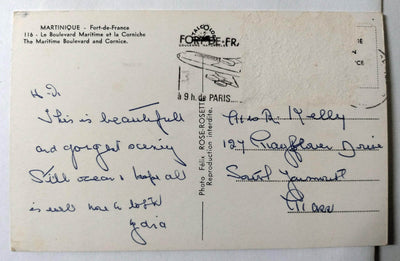 MARTINIQUE - Fort-de-France
116 - Le Boulevard Maritime et la Corniche
The Maritime Boulevard and Cornice.
FORT-DE-FR
à 9 h. de PARIS
Photo Félix ROSE-ROSETTE
Reproduction interdite.
Hi
This is beautiful
and gorgest scenery
Still ocean & hope all
is well
Lydia
Kelly
127 Mayflower Drive
South Yarmouth
Mass